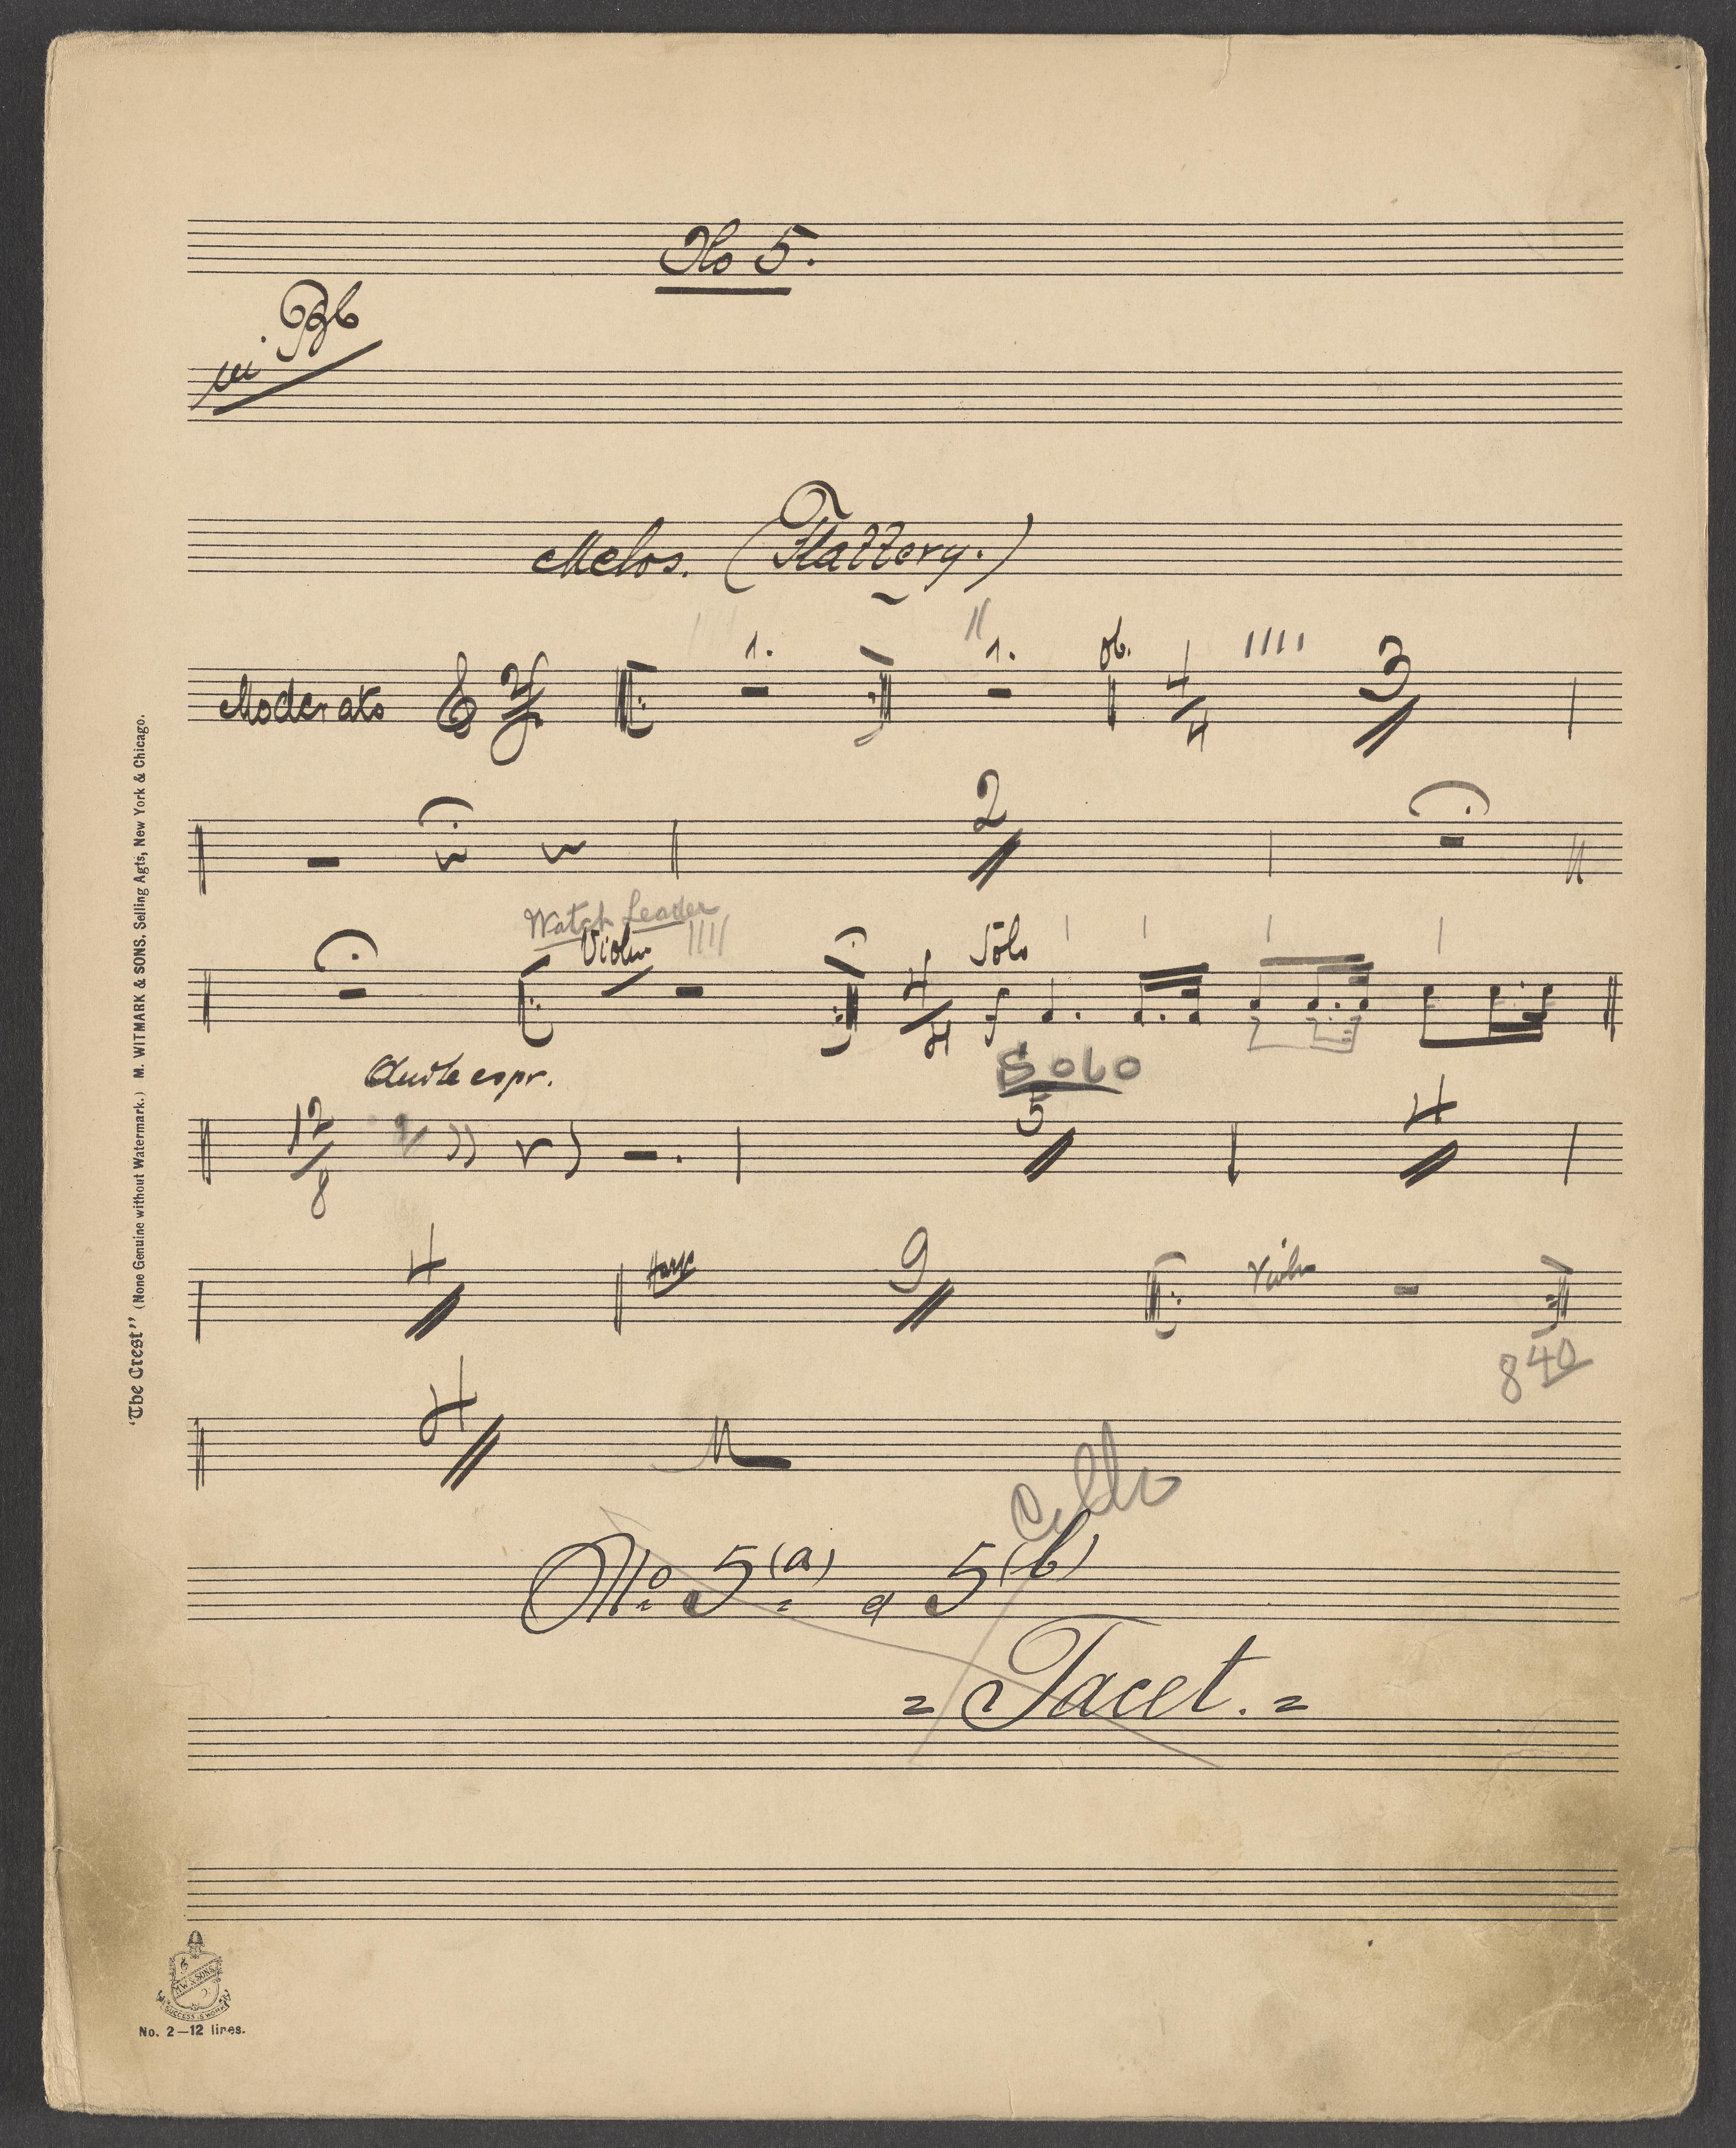 No 5.
in Bb
Melos. (Flattery.)
1. 1. Ob.
Moderato 4/4 3
2
Watch Leader
Violin Solo
4/4 f
Solo
12/8 5 4
4 Harp 9 Violin
840
4
No. 5(a) & 5(b)
= Tacet. =
"The Crest" (None Genuine without Watermark.) M. WITMARK & SONS, Selling Agts, New York & Chicago.
M.W. & SONS
SUCCESS IS WORK
No. 2—12 lines.